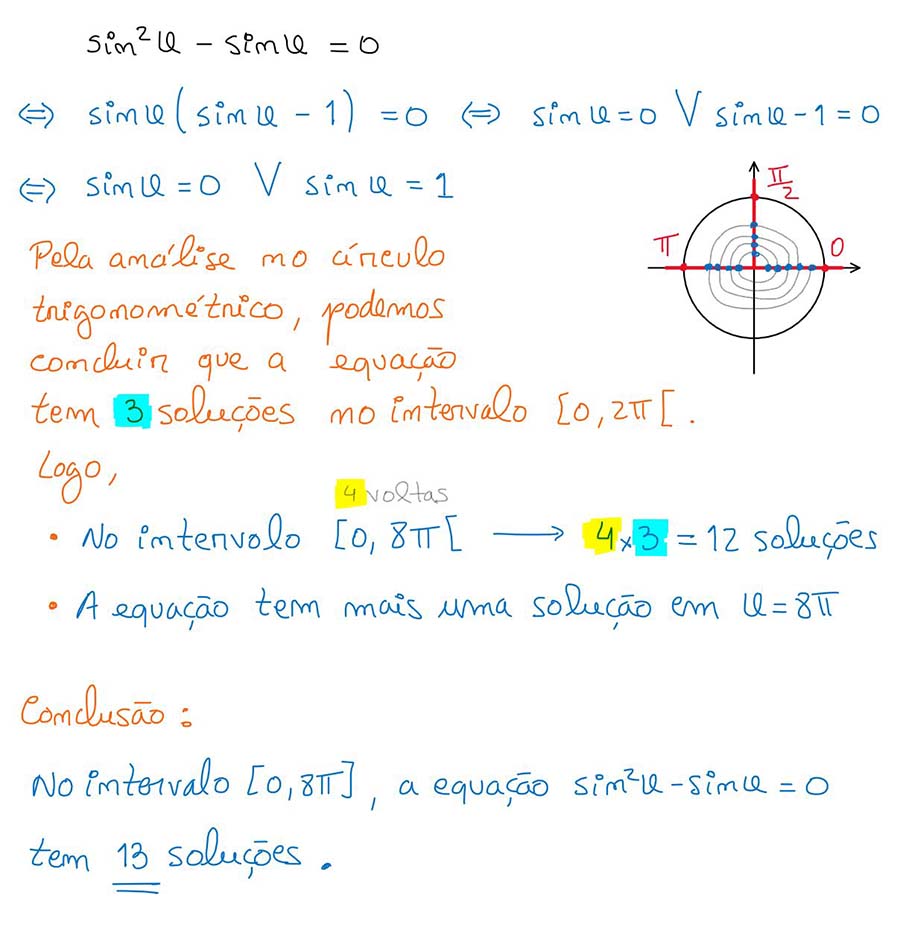 sin²θ - sinθ = 0
⇔ sinθ(sinθ - 1) = 0 ⇔ sinθ = 0 ∨ sinθ - 1 = 0
⇔ sinθ = 0 ∨ sinθ = 1
π/2
π 0
Pela análise no círculo
trigonométrico, podemos
concluir que a equação
tem 3 soluções no intervalo [0, 2π[.
Logo,
4 voltas
• No intervalo [0, 8π[ ⟶ 4×3 = 12 soluções
• A equação tem mais uma solução em θ = 8π
Conclusão:
No intervalo [0, 8π], a equação sin²θ - sinθ = 0
tem 13 soluções.